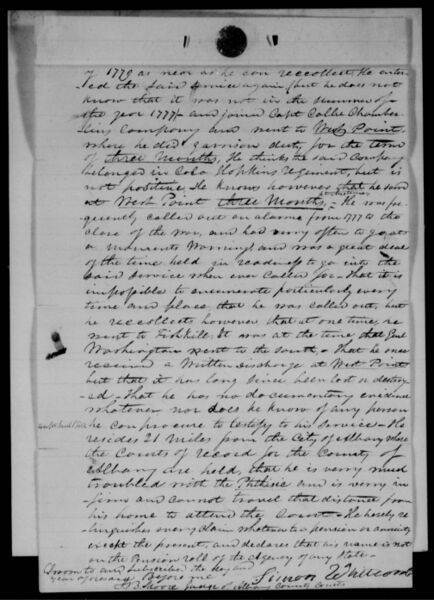 of 1779 as near as he can reccollect. He enter-
ed the said service again (but he does not
know that it was not in the summer of
the year 1777) and joined Capt Calle Chamber-
lins Company and went to West Point
where he did garrison duty, for the term
of three Months, He thinks the said Company
belonged in Cols Hopkins regiment, but is
not positive, He knows however that he served
at West Point three Months, at that time - He was fre-
quently called out on alarms from 1777 to the
close of the War, and had very often to go at
a minutes Warning, and was a great deal
of the time held in readiness to go into the
said service when ever called for - that it is
impossible to enumerate particularly every
time and place that he was called out, but
he reccollects however that at one time, he
went to Fishkill, it was at the time, that Genl
Washington went to the south, + That he once
received a Written discharge at West Point
but that it has long since been lost or destroy-
ed - That he has no documentary evidence
whatever nor does he know of any person
he can procure to testify to his service - He
resides 21 Miles from the City of Albany where
the Courts of record for the County of
Albany are held, that he is verry much
troubled with the Phthisic and is verry in-
firm and cannot travel that distance from
his home to attend the Court - He hereby re-
linquishes every claim whatever to a pension or annuity
except the present, and declares that his name is not
on the Pension roll of the Agency of any State -
Sworn to and subscribed the day and
year aforesaid Before me
Simon Whitcomb
Moore Judge of Albany County Courts